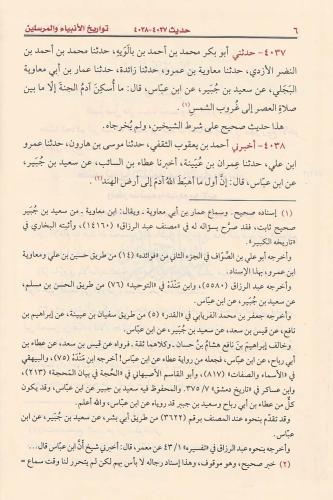 ٦ حديث ٤٠٣٧-٤٠٣٨ تواريخ الأنبياء والمرسلين
٤٠٣٧- حدثني أبو بكر محمد بن أحمد بن بالَوَيهِ، حدثنا محمد بن أحمد بن
النضر الأزدي، حدثنا معاوية بن عمرو، حدثنا زائدة، حدثنا عمار بن أبي معاوية
البَجَلي، عن سعيد بن جُبَير، عن ابن عباس، قال: ما أُسكِنَ آدمُ الجنةَ إلَّا ما بين
صلاةِ العصر إلى غُروب الشمسِ(١).
هذا حديث صحيح على شرط الشيخين، ولم يُخرجاه.
٤٠٣٨- أخبرني أحمد بن يعقوب الثقفي، حدثنا موسى بن هارون، حدثنا عمرو
ابن علي، حدثنا عِمران بن عُيَينة، أخبرنا عطاء بن السائب، عن سعيد بن جُبَير،
عن ابن عبّاس، قال: إنَّ أول ما أهبَطَ اللهُ آدمَ إلى أرض الهند(٢).
(١) إسناده صحيح. وسماع عمار بن أبي معاوية ـ ويقال: ابن معاوية ـ من سعيد بن جُبَير
صحيح ثابت، فقد صرَّح بسؤاله له في «مصنف عبد الرزاق» (١٤١٦٠)، وأثبته البخاري في
«تاريخه الكبير».
وأخرجه أبو علي بن الصَّوّاف في الجزء الثاني من «فوائده» (١٤) من طريق حسين بن علي ومعاوية
ابن عمرو، بهذا الإسناد.
وأخرجه عبد الرزاق (٥٥٨٠)، وابن مَنْدَهْ في «التوحيد» (٧٦) من طريق الحسن بن مسلم،
عن سعيد بن جُبَير، عن ابن عباس.
وأخرجه جعفر بن محمد الفريابي في «القدر» (٥) من طريق سفيان بن عيينة، عن إبراهيم بن
نافع، عن قيس بن سعد، عن سعيد بن جُبَير، عن ابن عباس.
وخالف إبراهيمَ بنَ نافع هشامُ بنُ حسان ـ وكلاهما ثقة ـ فرواه عن قيس بن سعد، عن عطاء بن
أبي رباح، عن ابن عبّاس، فجعله من رواية عطاء عن ابن عبّاس! أخرجه ابن مَنْدَهْ (٧٥)، والبيهقي
في «الأسماء والصفات» (٨١٧)، وأبو القاسم الأصبهاني في «الحُجّة في بيان المَحجّة» (٢١٣)،
وابن عساكر في «تاريخ دمشق» ٧/ ٣٧٥. والمحفوظ فيه سعيد بن جبير عن ابن عباس، وقد يكون
كلٌّ من عطاء بن أبي رباح وسعيد بن جبير قد رواه عن ابن عبّاس، والله أعلم.
وقد تقدَّم بنحوه عند المصنف برقم (٣٦٢٢) من طريق أبي بشر، عن سعيد بن جُبَير، عن ابن
عباس.
وأخرجه بنحوه عبد الرزاق في «تفسيره» ١/ ٤٣ عن معمر، قال: أخبرني شيخٌ أنَّ ابن عباس قال...
(٢) خبر صحيح، وهو موقوف، وهذا إسناد رجاله لا بأس بهم لكن لم يتحرر لنا وقت سماع =